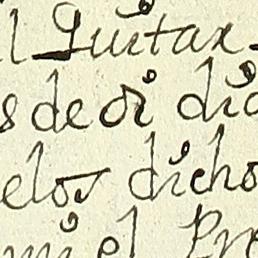 l Quitar
s de di dic
elos dicho
mi el Pre